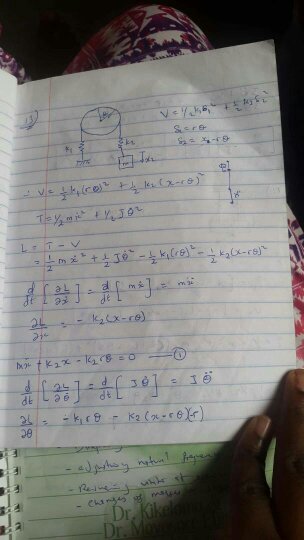 13)
θ
V = 1/2 k₁δ₁² + 1/2 k₂δ₂²
k₁
k₂
δ₁ = rθ
m
x₂
δ₂ = x₂ - rθ
∴ V = 1/2 k₁(rθ)² + 1/2 k₂(x-rθ)²
T = 1/2 mẋ² + 1/2 Jθ̇²
L = T - V
= 1/2 mẋ² + 1/2 Jθ̇² - 1/2 k₁(rθ)² - 1/2 k₂(x-rθ)²
d/dt [∂L/∂ẋ] = d/dt [mẋ] = mẍ
∂L/∂x = - k₂(x-rθ)
mẍ + k₂x - k₂rθ = 0 — ①
d/dt [∂L/∂θ̇] = d/dt [Jθ̇] = Jθ̈
∂L/∂θ = -k₁rθ - k₂(x-rθ)(-r)
- adjusting natural frequency
- changes of masses
Dr. Kikel
Dr. M